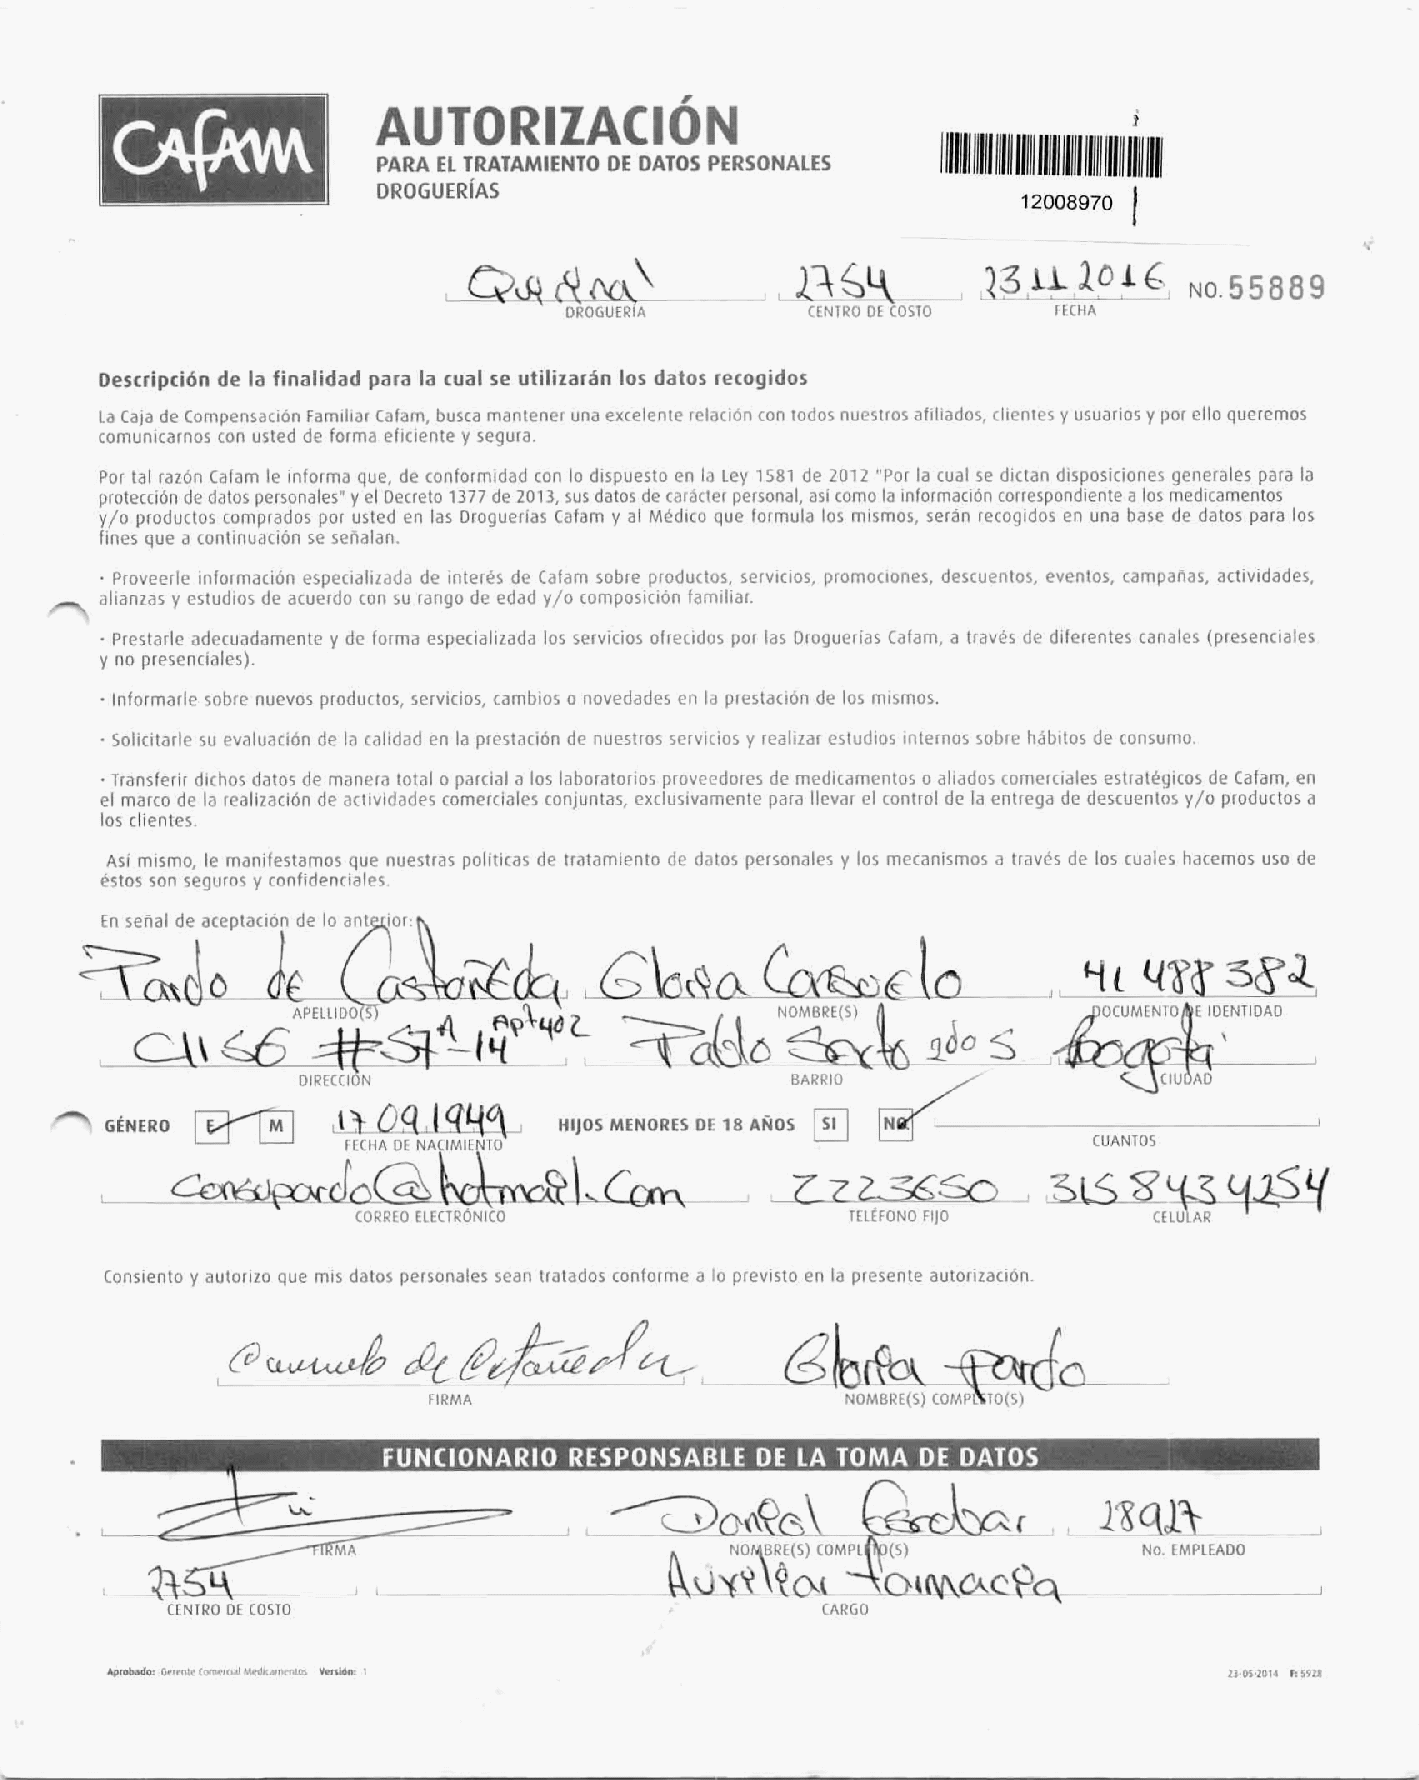 CAFAM
AUTORIZACIÓN
PARA EL TRATAMIENTO DE DATOS PERSONALES
DROGUERÍAS
12008970
Quirinal 2754 23 11 2016 NO. 55889
DROGUERÍA CENTRO DE COSTO FECHA
Descripción de la finalidad para la cual se utilizarán los datos recogidos
La Caja de Compensación Familiar Cafam, busca mantener una excelente relación con todos nuestros afiliados, clientes y usuarios y por ello queremos
comunicarnos con usted de forma eficiente y segura.
Por tal razón Cafam le informa que, de conformidad con lo dispuesto en la Ley 1581 de 2012 "Por la cual se dictan disposiciones generales para la
protección de datos personales" y el Decreto 1377 de 2013, sus datos de carácter personal, así como la información correspondiente a los medicamentos
y/o productos comprados por usted en las Droguerías Cafam y al Médico que formula los mismos, serán recogidos en una base de datos para los
fines que a continuación se señalan.
· Proveerle información especializada de interés de Cafam sobre productos, servicios, promociones, descuentos, eventos, campañas, actividades,
alianzas y estudios de acuerdo con su rango de edad y/o composición familiar.
· Prestarle adecuadamente y de forma especializada los servicios ofrecidos por las Droguerías Cafam, a través de diferentes canales (presenciales
y no presenciales).
· Informarle sobre nuevos productos, servicios, cambios o novedades en la prestación de los mismos.
· Solicitarle su evaluación de la calidad en la prestación de nuestros servicios y realizar estudios internos sobre hábitos de consumo.
· Transferir dichos datos de manera total o parcial a los laboratorios proveedores de medicamentos o aliados comerciales estratégicos de Cafam, en
el marco de la realización de actividades comerciales conjuntas, exclusivamente para llevar el control de la entrega de descuentos y/o productos a
los clientes.
Así mismo, le manifestamos que nuestras políticas de tratamiento de datos personales y los mecanismos a través de los cuales hacemos uso de
éstos son seguros y confidenciales.
En señal de aceptación de lo anterior:
Pardo de Castañeda Gloria Consuelo 41 488 382
APELLIDO(S) NOMBRE(S) DOCUMENTO DE IDENTIDAD
Cll 56 # 57A-14 Apt 402 Pablo Sexto 2do S Bogota
DIRECCIÓN BARRIO CIUDAD
GÉNERO F M 17 09 1949 HIJOS MENORES DE 18 AÑOS SI NO
FECHA DE NACIMIENTO CUANTOS
consupardo@hotmail.com 2223650 3158434254
CORREO ELECTRÓNICO TELÉFONO FIJO CELULAR
Consiento y autorizo que mis datos personales sean tratados conforme a lo previsto en la presente autorización.
Consuelo de Castañeda Gloria Pardo
FIRMA NOMBRE(S) COMPLETO(S)
FUNCIONARIO RESPONSABLE DE LA TOMA DE DATOS
Daniel Escobar 28927
FIRMA NOMBRE(S) COMPLETO(S) No. EMPLEADO
2754 Auxiliar farmacia
CENTRO DE COSTO CARGO
Aprobado: Gerente Comercial Medicamentos Versión: 1 23-05-2014 F: 5928